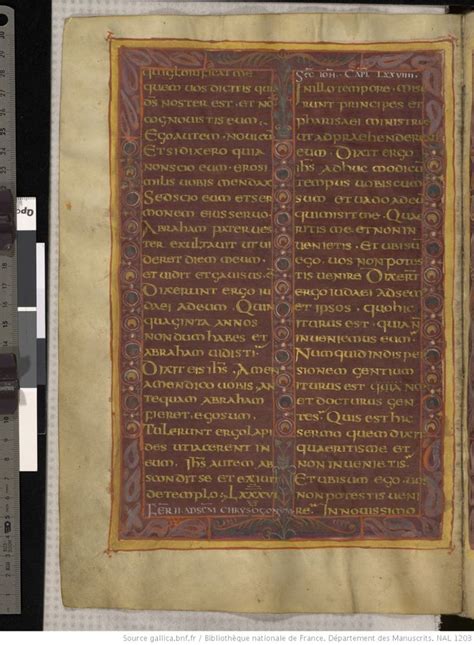 qui glorificat me
quem uos dicitis quia
ds noster est · et non
cognouistis eum ·
Ego autem · noui eum
Et si dixero quia
non scio eum · ero si
milis uobis mendax
Sed scio eum et ser
monem eius seruo
Abraham pater ues
ter exultauit ut ui
deret diem meum ·
et uidit et gauisus ·
Dixerunt ergo iu
daei ad eum · Quin
quaginta annos
nondum habes et
abraham uidisti ·
Dixit eis ihs · Amen
amen dico uobis · an
tequam abraham
fieret · ego sum ·
Tulerunt ergo lapi
des ut iacerent in
eum · Ihs autem abs
condit se et exiuit
de templo ·
Fer II ad scm chrysogonum
Sec ioh · Capl LXXVIII ·
In illo tempore · mise
runt principes et
pharisaei ministros
ut adprehenderent
eum · Dixit ergo
ihs · adhuc modicum
tempus uobiscum
sum et uado ad eum
qui misit me · Quae
ritis me et non in
uenietis · Et ubi sum
ego · uos non potes
tis uenire · Dixerunt
ergo iudaei ad se me
et ipsos · quo hic
iturus est · quia non
inueniemus eum
Numquid in disper
sionem gentium
iturus est
et docturus gen
tes · Quis est hic
sermo quem dixit
quaeritis me et
non inuenietis ·
Et ubi sum ego · uos
non potestis ueni
re · In nouissimo
Source gallica.bnf.fr / Bibliothèque nationale de France, Département des Manuscrits, NAL 1203